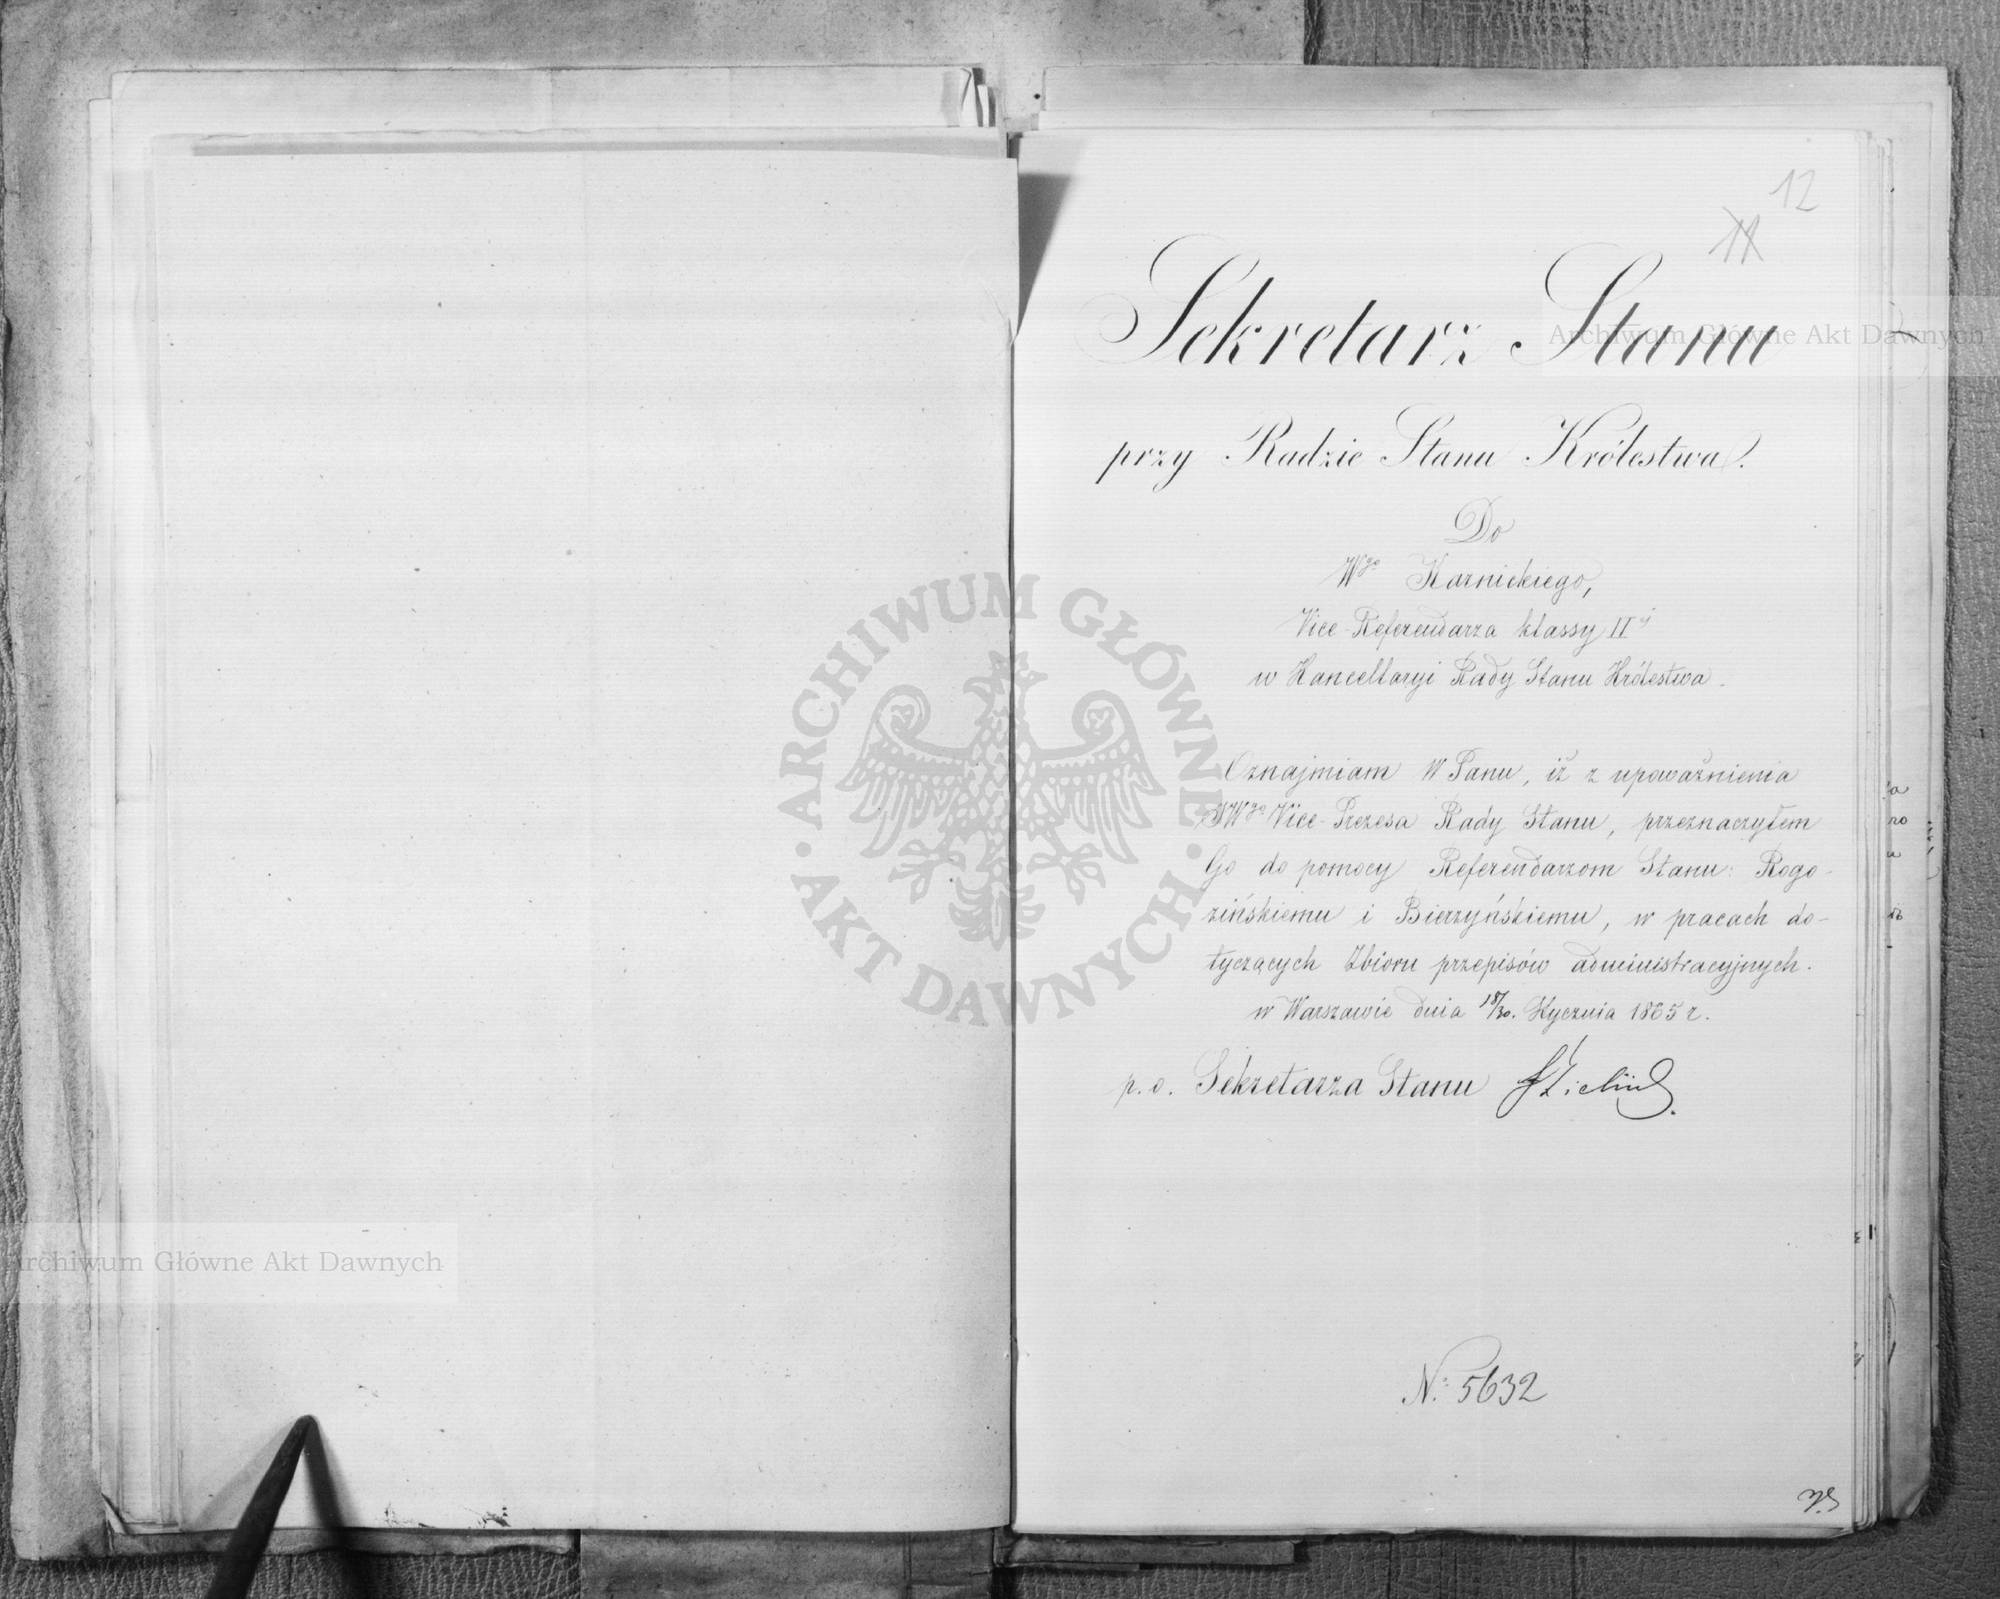 12
11
Sekretarz Stanu
przy Radzie Stanu Królestwa.
Do
Wgo Karnickiego,
Vice-Referendarza klassy IIej
w Kancellaryi Rady Stanu Królestwa.
Oznajmiam WPanu, iż z upoważnienia
JWgo Vice-Prezesa Rady Stanu, przeznaczyłem
Go do pomocy Referendarzom Stanu: Rogo-
zińskiemu i Bierzyńskiemu, w pracach do-
tyczących Zbioru przepisów administracyjnych.
w Warszawie dnia 18/30. Stycznia 1865 r.
p. o. Sekretarza Stanu
No. 5632
Archiwum Główne Akt Dawnych
Archiwum Główne Akt Dawnych
ARCHIWUM GŁÓWNE · AKT DAWNYCH ·